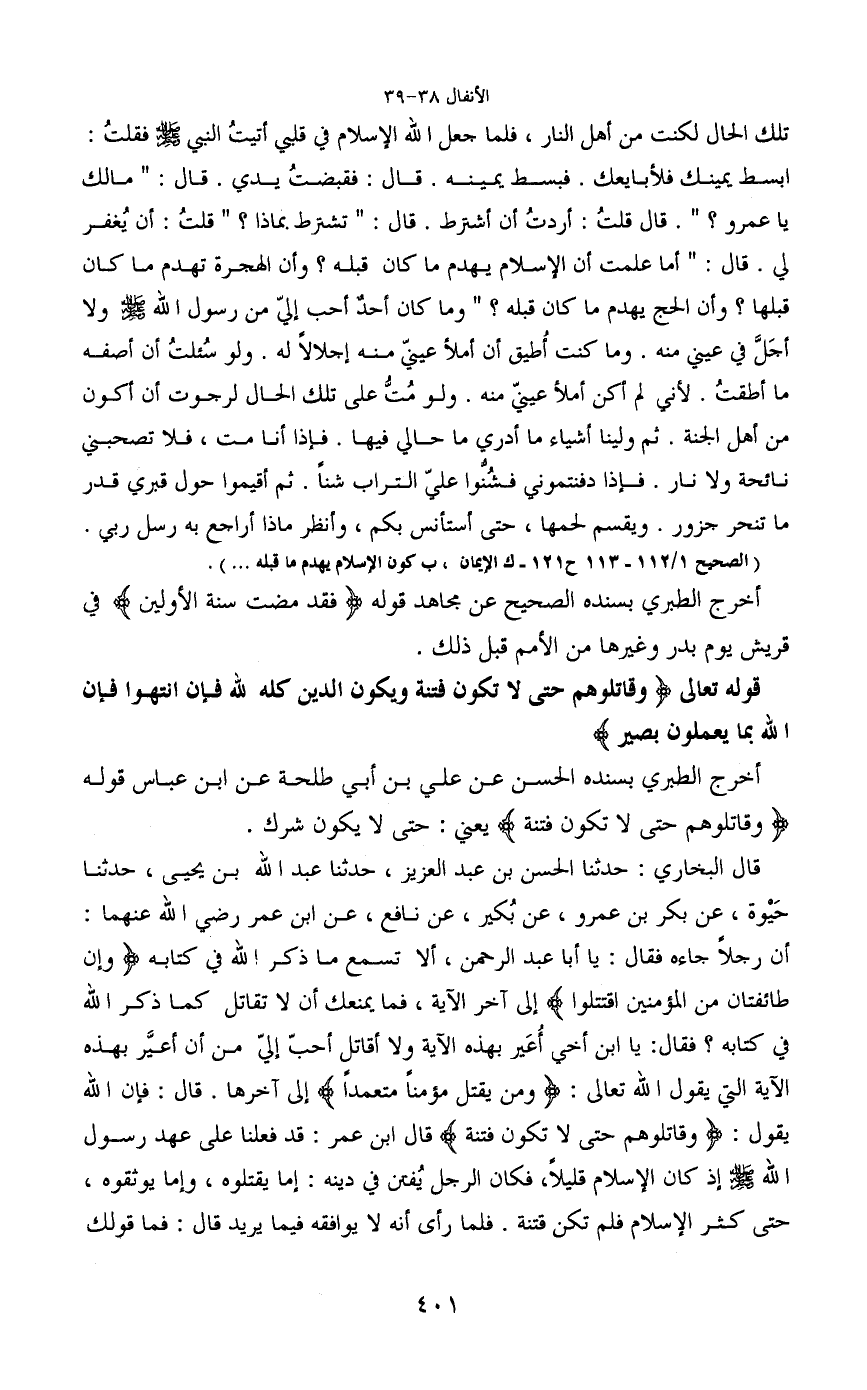 الأنفال ٣٨-٣٩
تلك الحال لكنت من أهل النار ، فلما جعل الله الإسلام في قلبي أتيتُ النبي ﷺ فقلتُ :
ابسط يمينك فلأبايعك . فبسط يمينه . قال : فقبضتُ يدي . قال : " مالك
يا عمرو ؟ " . قال قلتُ : أردتُ أن أشترط . قال : " تشترط بماذا ؟ " قلتُ : أن يُغفر
لي . قال : " أما علمت أن الإسلام يهدم ما كان قبله ؟ وأن الهجرة تهدم ما كان
قبلها ؟ وأن الحج يهدم ما كان قبله ؟ " وما كان أحدٌ أحب إليّ من رسول الله ﷺ ولا
أجَلَّ في عيني منه . وما كنت أُطيق أن أملأ عينيّ منه إجلالاً له . ولو سُئلتُ أن أصفه
ما أطقتُ . لأني لم أكن أملأ عينيّ منه . ولو مُتُّ على تلك الحال لرجوت أن أكون
من أهل الجنة . ثم ولينا أشياء ما أدري ما حالي فيها . فإذا أنا مت ، فلا تصحبني
نائحة ولا نار . فإذا دفنتموني فشُنُّوا عليّ التراب شناً . ثم أقيموا حول قبري قدر
ما تنحر جزور . ويقسم لحمها ، حتى أستأنس بكم ، وأنظر ماذا أراجع به رسل ربي .
( الصحيح ١١٢/١ - ١١٣ ح١٢١ - ك الإيمان ، ب كون الإسلام يهدم ما قبله ... ) .
أخرج الطبري بسنده الصحيح عن مجاهد قوله ﴿ فقد مضت سنة الأولين ﴾ في
قريش يوم بدر وغيرها من الأمم قبل ذلك .
قوله تعالى ﴿ وقاتلوهم حتى لا تكون فتنة ويكون الدين كله لله فإن انتهوا فإن
الله بما يعملون بصير ﴾
أخرج الطبري بسنده الحسن عن علي بن أبي طلحة عن ابن عباس قوله
﴿ وقاتلوهم حتى لا تكون فتنة ﴾ يعني : حتى لا يكون شرك .
قال البخاري : حدثنا الحسن بن عبد العزيز ، حدثنا عبد الله بن يحيى ، حدثنا
حَيْوة ، عن بكر بن عمرو ، عن بُكير ، عن نافع ، عن ابن عمر رضي الله عنهما :
أن رجلاً جاءه فقال : يا أبا عبد الرحمن ، ألا تسمع ما ذكر الله في كتابه ﴿ وإن
طائفتان من المؤمنين اقتتلوا ﴾ إلى آخر الآية ، فما يمنعك أن لا تقاتل كما ذكر الله
في كتابه ؟ فقال: يا ابن أخي أُعَير بهذه الآية ولا أقاتل أحبّ إليّ من أن أعيَّر بهذه
الآية التي يقول الله تعالى : ﴿ ومن يقتل مؤمناً متعمداً ﴾ إلى آخرها . قال : فإن الله
يقول : ﴿ وقاتلوهم حتى لا تكون فتنة ﴾ قال ابن عمر : قد فعلنا على عهد رسول
الله ﷺ إذ كان الإسلام قليلاً، فكان الرجل يُفتن في دينه : إما يقتلوه ، وإما يوثقوه ،
حتى كثر الإسلام فلم تكن فتنة . فلما رأى أنه لا يوافقه فيما يريد قال : فما قولك
٤٠١